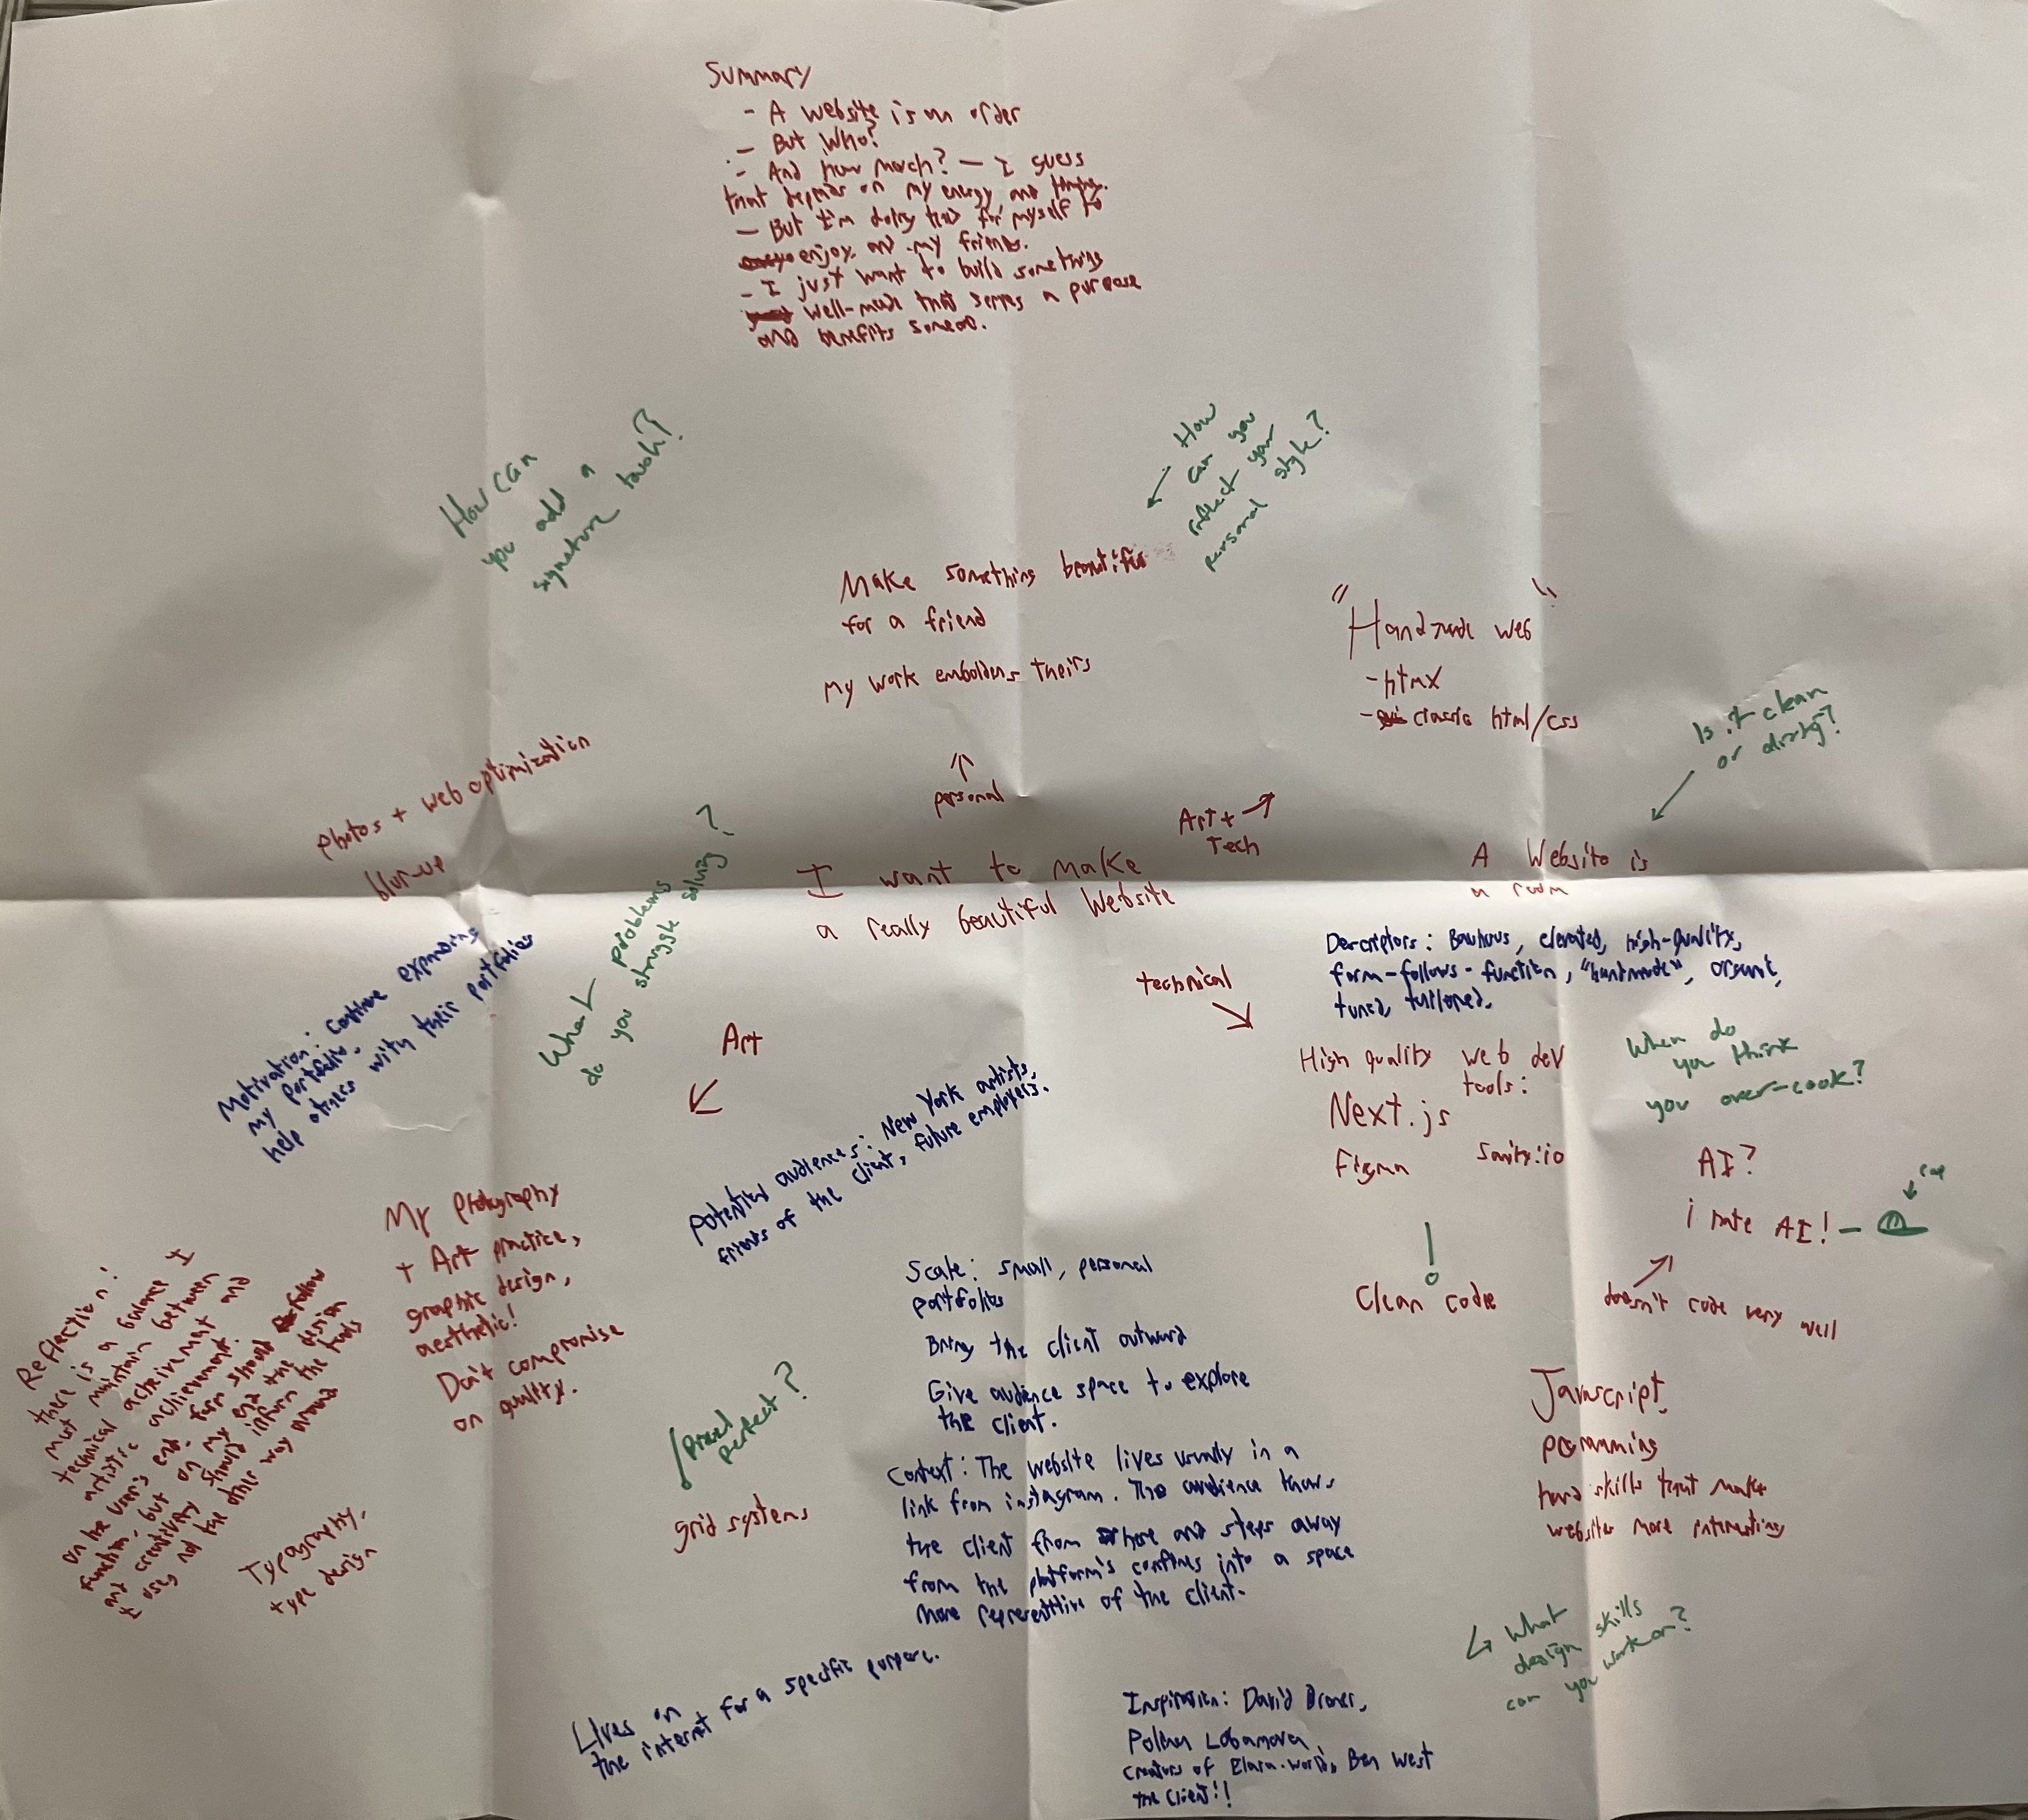 Summary
- A website is an order
- But Who?
- And how much? — I guess
that depends on my energy, and
- But I'm doing this for myself to
enjoy, and my friends.
- I just want to build something
well-made that serves a purpose
and benefits someone.
How can
you add a
signature touch?
How
can you
reflect your
personal style?
Make something beautiful
for a friend
My work emboldens theirs
"Handmade web"
- htmx
- classic html/css
Is it clean
or dirty?
photos + web optimization
blur-up
↑
personal
Art +
Tech
I want to make
a really beautiful Website
A Website is
a room
What problems
do you struggle solving?
Motivation: Continue expanding
my portfolio,
help others with their portfolios
technical
Descriptors: Bauhaus, elevated, high-quality,
form-follows-function, "handmade", organic,
tuned, tailored.
Art
High quality web dev
tools:
Next.js
Figma
Sanity.io
When do
you think
you over-cook?
Potential audiences: New York artists,
friends of the client, future employers.
AI?
i hate AI! —
cap
doesn't code very well
My photography
+ Art practice,
graphic design,
aesthetic!
Don't compromise
on quality.
Scale: small, personal
portfolios
Bring the client outward
Give audience space to explore
the client.
Clean code
Reflection:
there is a balance I
must maintain between
technical acheivemnt and
artistic achievement.
On the user's end, form should follow
function, but on my end the design
and creativity should inform the tools
I use, not the other way around
Pixel
perfect?
grid systems
Typography,
type design
Context: The website lives usually in a
link from instagram. The audience knows
the client from there and steps away
from the platform's confines into a space
more representitive of the client.
Javascript
hard skills that make
websites more interesting
What
design skills
can you work on?
Lives on
the internet for a specific purpose.
Inspiration: David
Polina Lobanova,
creators of Elara.world, Ben West
the client!!